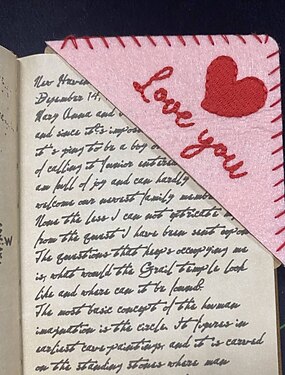 New Haven
December 14,
Mary Anna and
and since it's impos
it's going to be a boy
of calling it Junior
am full of joy and can hardly
welcome our newest family memb
None the less I can not
from the quest I have been sent upon
The questions that keeps occupying me
is, what would the Grail temple look
like and where can it be found?
The most basic concept of the human
imagination is the circle. It figures in
earliest cave paintings and it is carved
on the standing stones where man
Love you
W